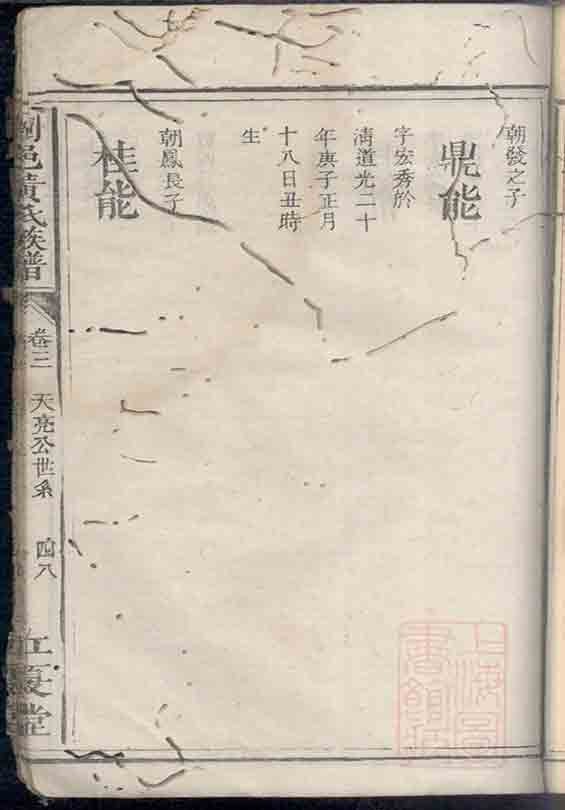 朝發之子
鼎能
字宏秀於
清道光二十
年庚子正月
十八日丑時
生
朝鳳長子
桂能
邑黃氏族譜
卷三
天亮公世系
四八
江夏堂
上海圖書館藏